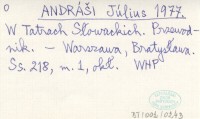 O ANDRÁŠI Július 1977.
W Tatrach Słowackich. Przewod-
nik. – Warszawa, Bratysława.
Ss. 218, m. 1, okł. WHP
BJ 1006/02/43